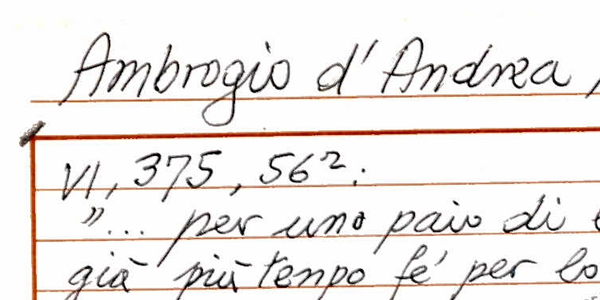 Ambrogio d'Andrea,
VI, 375, 56²:
"... per uno paio di
già più tenpo fé per lo